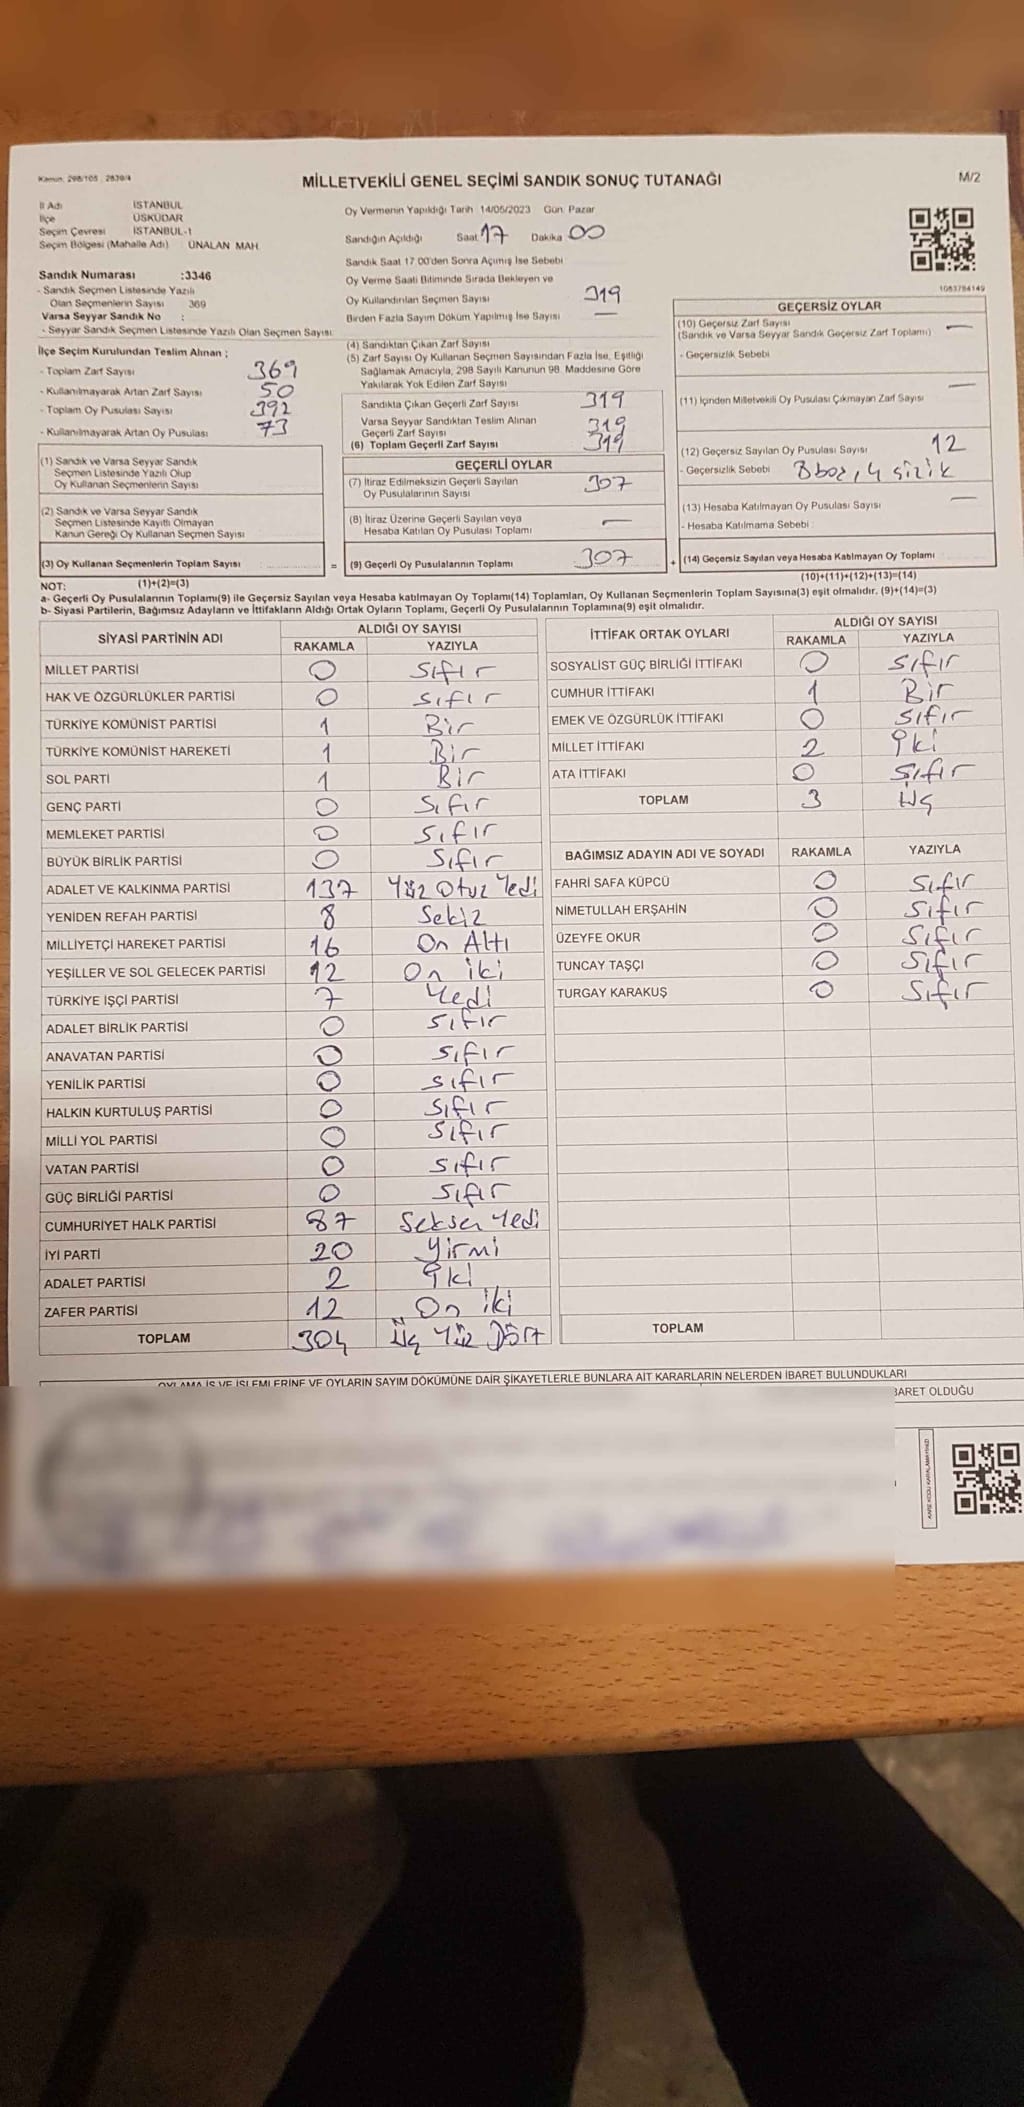 Kanun: 298/105 : 2839/4
MİLLETVEKİLİ GENEL SEÇİMİ SANDIK SONUÇ TUTANAĞI
M/2
İl Adı İSTANBUL
İlçe ÜSKÜDAR
Seçim Çevresi İSTANBUL-1
Seçim Bölgesi (Mahalle Adı) ÜNALAN MAH.
Oy Vermenin Yapıldığı Tarih 14/05/2023 Gün: Pazar
Sandığın Açıldığı Saat 17 Dakika 00
Sandık Saat 17:00'den Sonra Açımış İse Sebebi
Oy Verme Saati Bitiminde Sırada Bekleyen ve
Oy Kullandırılan Seçmen Sayısı 319
Birden Fazla Sayım Döküm Yapılmış İse Sayısı —
1083784149
Sandık Numarası :3346
- Sandık Seçmen Listesinde Yazılı
Olan Seçmenlerin Sayısı 369
Varsa Seyyar Sandık No :
- Seyyar Sandık Seçmen Listesinde Yazılı Olan Seçmen Sayısı:
İlçe Seçim Kurulundan Teslim Alınan ;
- Toplam Zarf Sayısı 369
- Kullanılmayarak Artan Zarf Sayısı 50
- Toplam Oy Pusulası Sayısı 392
- Kullanılmayarak Artan Oy Pusulası 73
(1) Sandık ve Varsa Seyyar Sandık
Seçmen Listesinde Yazılı Olup
Oy Kullanan Seçmenlerin Sayısı
(2) Sandık ve Varsa Seyyar Sandık
Seçmen Listesinde Kayıtlı Olmayan
Kanun Gereği Oy Kullanan Seçmen Sayısı
(3) Oy Kullanan Seçmenlerin Toplam Sayısı =
(4) Sandıktan Çıkan Zarf Sayısı
(5) Zarf Sayısı Oy Kullanan Seçmen Sayısından Fazla İse, Eşitliği
Sağlamak Amacıyla, 298 Sayılı Kanunun 98. Maddesine Göre
Yakılarak Yok Edilen Zarf Sayısı
Sandıkta Çıkan Geçerli Zarf Sayısı 319
Varsa Seyyar Sandıktan Teslim Alınan
Geçerli Zarf Sayısı 319
(6) Toplam Geçerli Zarf Sayısı 319
GEÇERLİ OYLAR
(7) İtiraz Edilmeksizin Geçerli Sayılan
Oy Pusulalarının Sayısı 307
(8) İtiraz Üzerine Geçerli Sayılan veya
Hesaba Katılan Oy Pusulası Toplamı —
(9) Geçerli Oy Pusulalarının Toplamı 307 +
GEÇERSİZ OYLAR
(10) Geçersiz Zarf Sayısı —
(Sandık ve Varsa Seyyar Sandık Geçersiz Zarf Toplamı)
- Geçersizlik Sebebi
(11) İçinden Milletvekili Oy Pusulası Çıkmayan Zarf Sayısı —
(12) Geçersiz Sayılan Oy Pusulası Sayısı 12
- Geçersizlik Sebebi 8 boş, 4 çizik
(13) Hesaba Katılmayan Oy Pusulası Sayısı —
- Hesaba Katılmama Sebebi :
(14) Geçersiz Sayılan veya Hesaba Katılmayan Oy Toplamı
NOT: (1)+(2)=(3) (10)+(11)+(12)+(13)=(14)
a- Geçerli Oy Pusulalarının Toplamı(9) ile Geçersiz Sayılan veya Hesaba katılmayan Oy Toplamı(14) Toplamları, Oy Kullanan Seçmenlerin Toplam Sayısına(3) eşit olmalıdır. (9)+(14)=(3)
b- Siyasi Partilerin, Bağımsız Adayların ve İttifakların Aldığı Ortak Oyların Toplamı, Geçerli Oy Pusulalarının Toplamına(9) eşit olmalıdır.
SİYASİ PARTİNİN ADI ALDIĞI OY SAYISI
RAKAMLA YAZIYLA
MİLLET PARTİSİ 0 Sıfır
HAK VE ÖZGÜRLÜKLER PARTİSİ 0 Sıfır
TÜRKİYE KOMÜNİST PARTİSİ 1 Bir
TÜRKİYE KOMÜNİST HAREKETİ 1 Bir
SOL PARTİ 1 Bir
GENÇ PARTİ 0 Sıfır
MEMLEKET PARTİSİ 0 Sıfır
BÜYÜK BİRLİK PARTİSİ 0 Sıfır
ADALET VE KALKINMA PARTİSİ 137 Yüz Otuz Yedi
YENİDEN REFAH PARTİSİ 8 Sekiz
MİLLİYETÇİ HAREKET PARTİSİ 16 On Altı
YEŞİLLER VE SOL GELECEK PARTİSİ 12 On iki
TÜRKİYE İŞÇİ PARTİSİ 7 Yedi
ADALET BİRLİK PARTİSİ 0 Sıfır
ANAVATAN PARTİSİ 0 Sıfır
YENİLİK PARTİSİ 0 Sıfır
HALKIN KURTULUŞ PARTİSİ 0 Sıfır
MİLLİ YOL PARTİSİ 0 Sıfır
VATAN PARTİSİ 0 Sıfır
GÜÇ BİRLİĞİ PARTİSİ 0 Sıfır
CUMHURİYET HALK PARTİSİ 87 Seksen Yedi
İYİ PARTİ 20 Yirmi
ADALET PARTİSİ 2 İki
ZAFER PARTİSİ 12 On iki
TOPLAM 304 Üç Yüz Dört
İTTİFAK ORTAK OYLARI ALDIĞI OY SAYISI
RAKAMLA YAZIYLA
SOSYALİST GÜÇ BİRLİĞİ İTTİFAKI 0 Sıfır
CUMHUR İTTİFAKI 1 Bir
EMEK VE ÖZGÜRLÜK İTTİFAKI 0 Sıfır
MİLLET İTTİFAKI 2 İki
ATA İTTİFAKI 0 Sıfır
TOPLAM 3 Üç
BAĞIMSIZ ADAYIN ADI VE SOYADI RAKAMLA YAZIYLA
FAHRİ SAFA KÜPCÜ 0 Sıfır
NİMETULLAH ERŞAHİN 0 Sıfır
ÜZEYFE OKUR 0 Sıfır
TUNCAY TAŞÇI 0 Sıfır
TURGAY KARAKUŞ 0 Sıfır
TOPLAM
OYLAMA İŞ VE İŞLEMLERİNE VE OYLARIN SAYIM DÖKÜMÜNE DAİR ŞİKAYETLERLE BUNLARA AİT KARARLARIN NELERDEN İBARET BULUNDUKLARI
BARET OLDUĞU